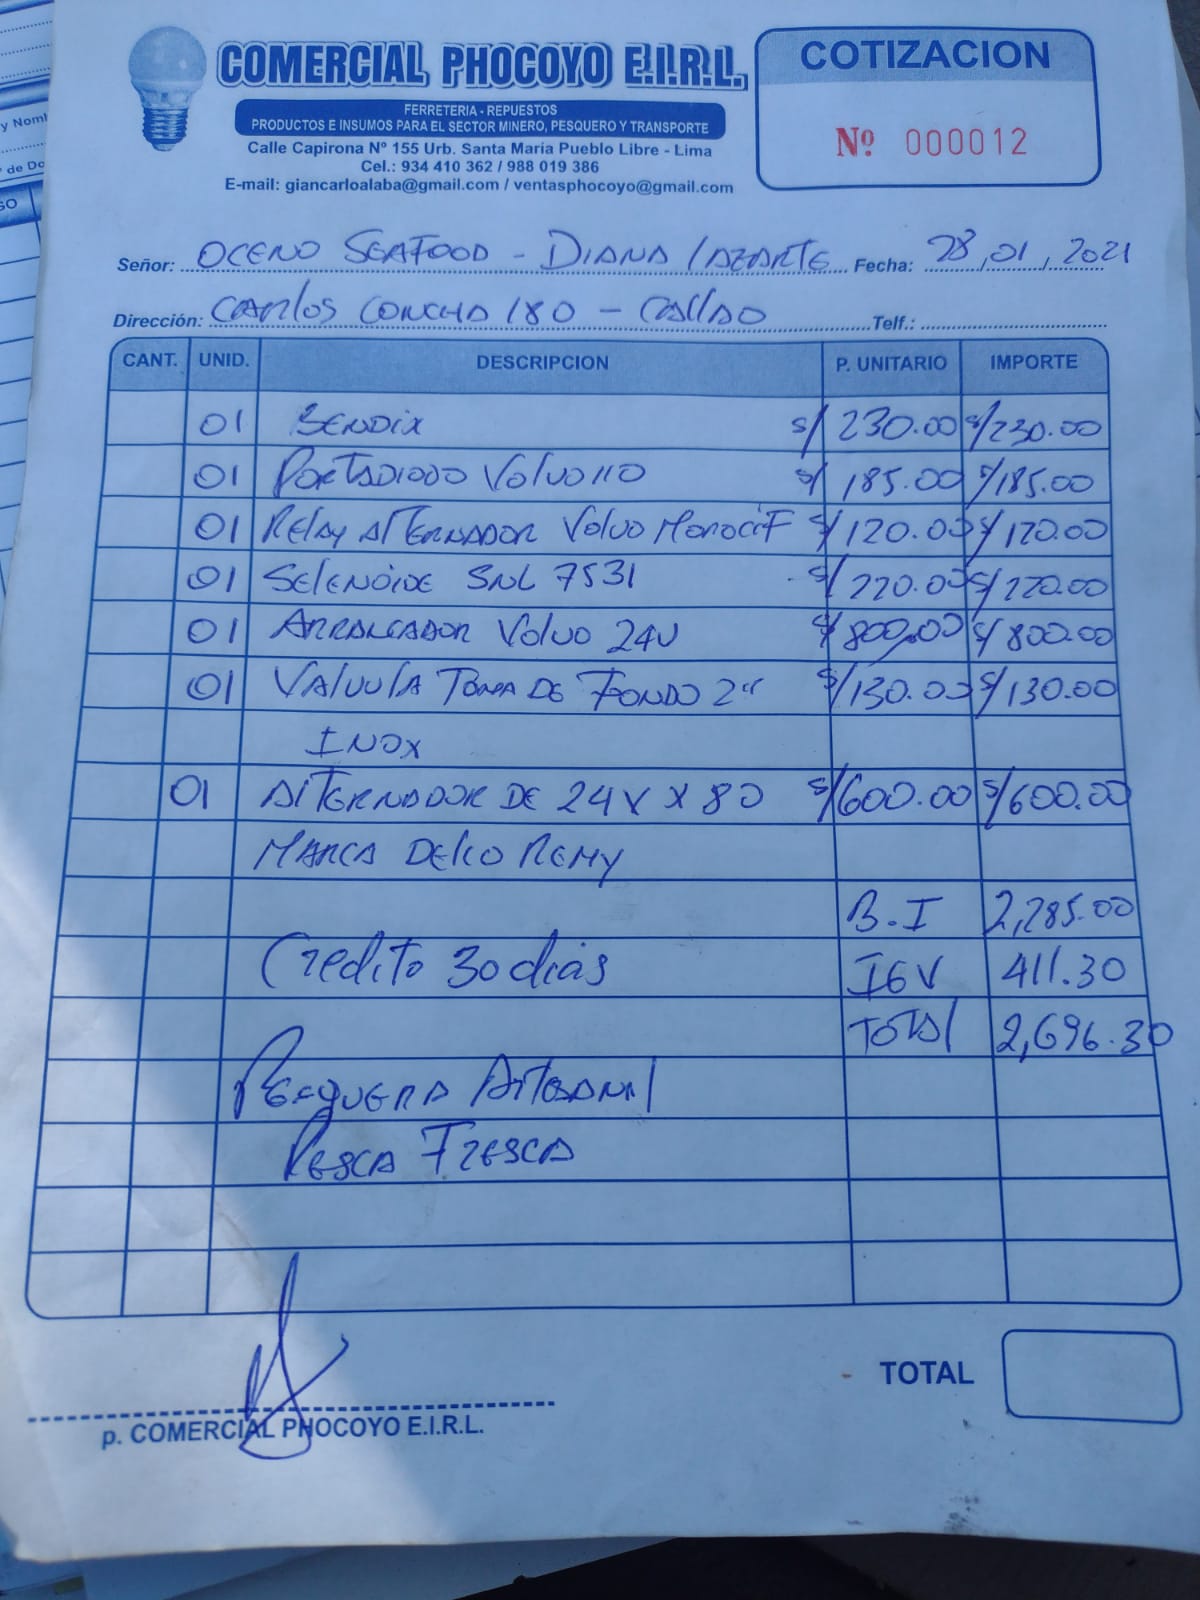 COMERCIAL PHOCOYO E.I.R.L.
FERRETERIA - REPUESTOS
PRODUCTOS E INSUMOS PARA EL SECTOR MINERO, PESQUERO Y TRANSPORTE
Calle Capirona Nº 155 Urb. Santa Maria Pueblo Libre - Lima
Cel.: 934 410 362 / 988 019 386
E-mail: giancarloalaba@gmail.com / ventasphocoyo@gmail.com
COTIZACION
Nº 000012
Señor: OCENO SEAFOOD - DIANA LAZARTE Fecha: 28,01,2021
Dirección: CARLOS CONCHA 180 - CALLAO Telf.:
CANT. UNID. DESCRIPCION P. UNITARIO IMPORTE
01 BENDIX S/ 230.00 S/230.00
01 PORTADIODO VOLVO 110 S/ 185.00 S/185.00
01 RELAY ALTERNADOR VOLVO S/120.00 S/120.00
01 SELENOIDE SNL 7531 S/220.00 S/220.00
01 ARRANCADOR VOLVO 24V S/800.00 S/800.00
01 VALVULA TOMA DE FONDO 2" S/130.00 S/130.00
INOX
01 ALTERNADOR DE 24V X 80 S/600.00 S/600.00
MARCA DELCO REMY
B.I 2,285.00
Credito 30 dias IGV 411.30
TOTAL 2,696.30
PESQUERA ARTESANAL
PESCA FRESCA
TOTAL
p. COMERCIAL PHOCOYO E.I.R.L.
y Nom
de Do